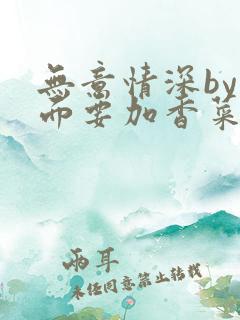 無意情深by
而要加香菜
兩耳
未经同意禁止转载